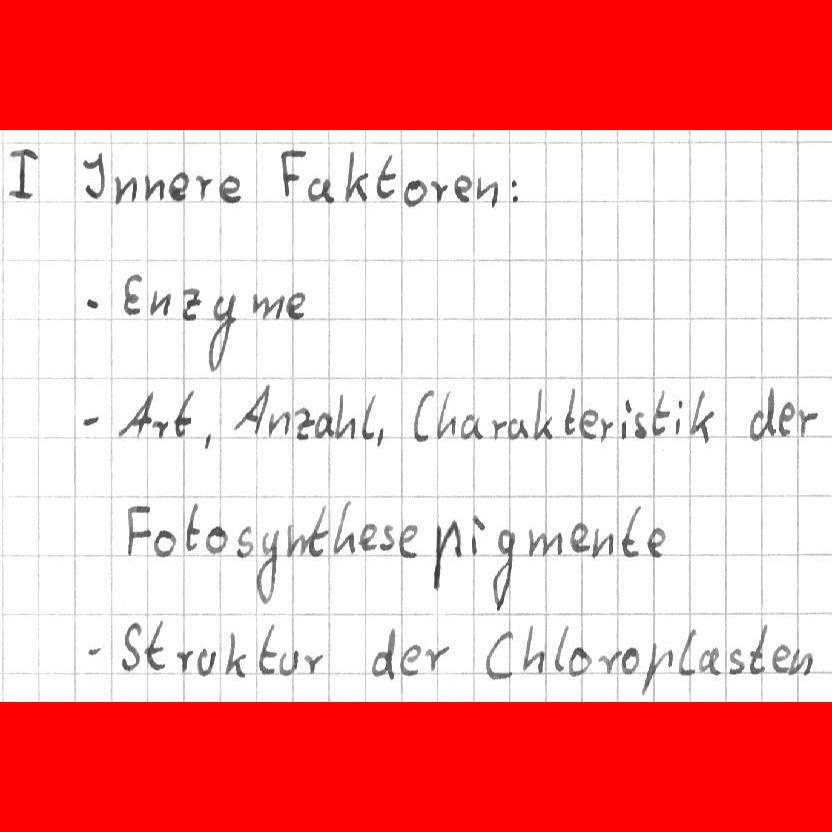 I Innere Faktoren:
- Enzyme
- Art, Anzahl, Charakteristik der
Fotosynthesepigmente
- Struktur der Chloroplasten